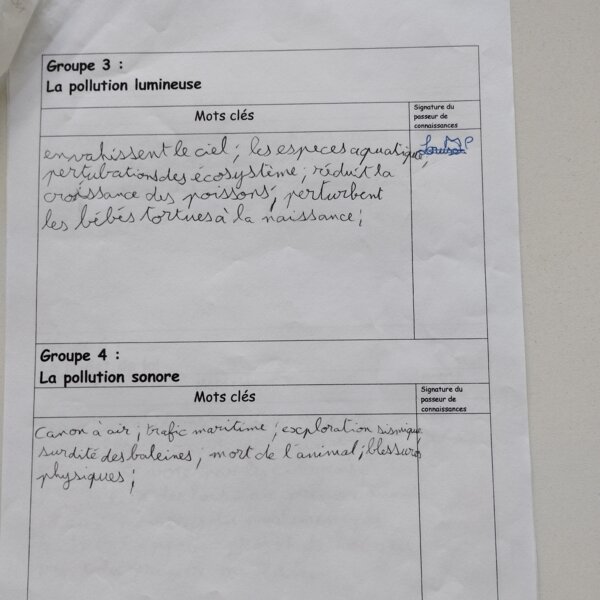 Groupe 3 :
La pollution lumineuse
Mots clés
Signature du
passeur de
connaissances
envahissent le ciel ; les especes aquatique,
perturbations des écosystème ; réduit la
croissance des poissons ; perturbent
les bébés tortues à la naissance ;
Groupe 4 :
La pollution sonore
Mots clés
Signature du
passeur de
connaissances
Canon à air ; trafic maritime ; exploration sismique
surdité des baleines ; mort de l'animal ; blessures
physiques ;